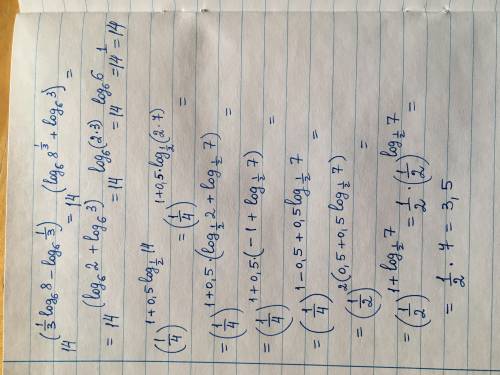 14^(1/3 log₆ 8 − log₆ 1/3) = 14^(log₆ 8^(1/3) + log₆ 3) =
= 14^(log₆ 2 + log₆ 3) = 14^(log₆(2·3)) = 14^(log₆ 6) = 14^1 = 14
(1/4)^(1+0,5 log_(1/2) 14) = (1/4)^(1+0,5·log_(1/2)(2·7)) =
= (1/4)^(1+0,5·(log_(1/2) 2 + log_(1/2) 7)) =
= (1/4)^(1+0,5·(−1 + log_(1/2) 7)) =
= (1/4)^(1−0,5+0,5 log_(1/2) 7) =
= (1/2)^(2(0,5+0,5 log_(1/2) 7)) =
= (1/2)^(1+log_(1/2) 7) = 1/2 · (1/2)^(log_(1/2) 7) =
= 1/2 · 7 = 3,5